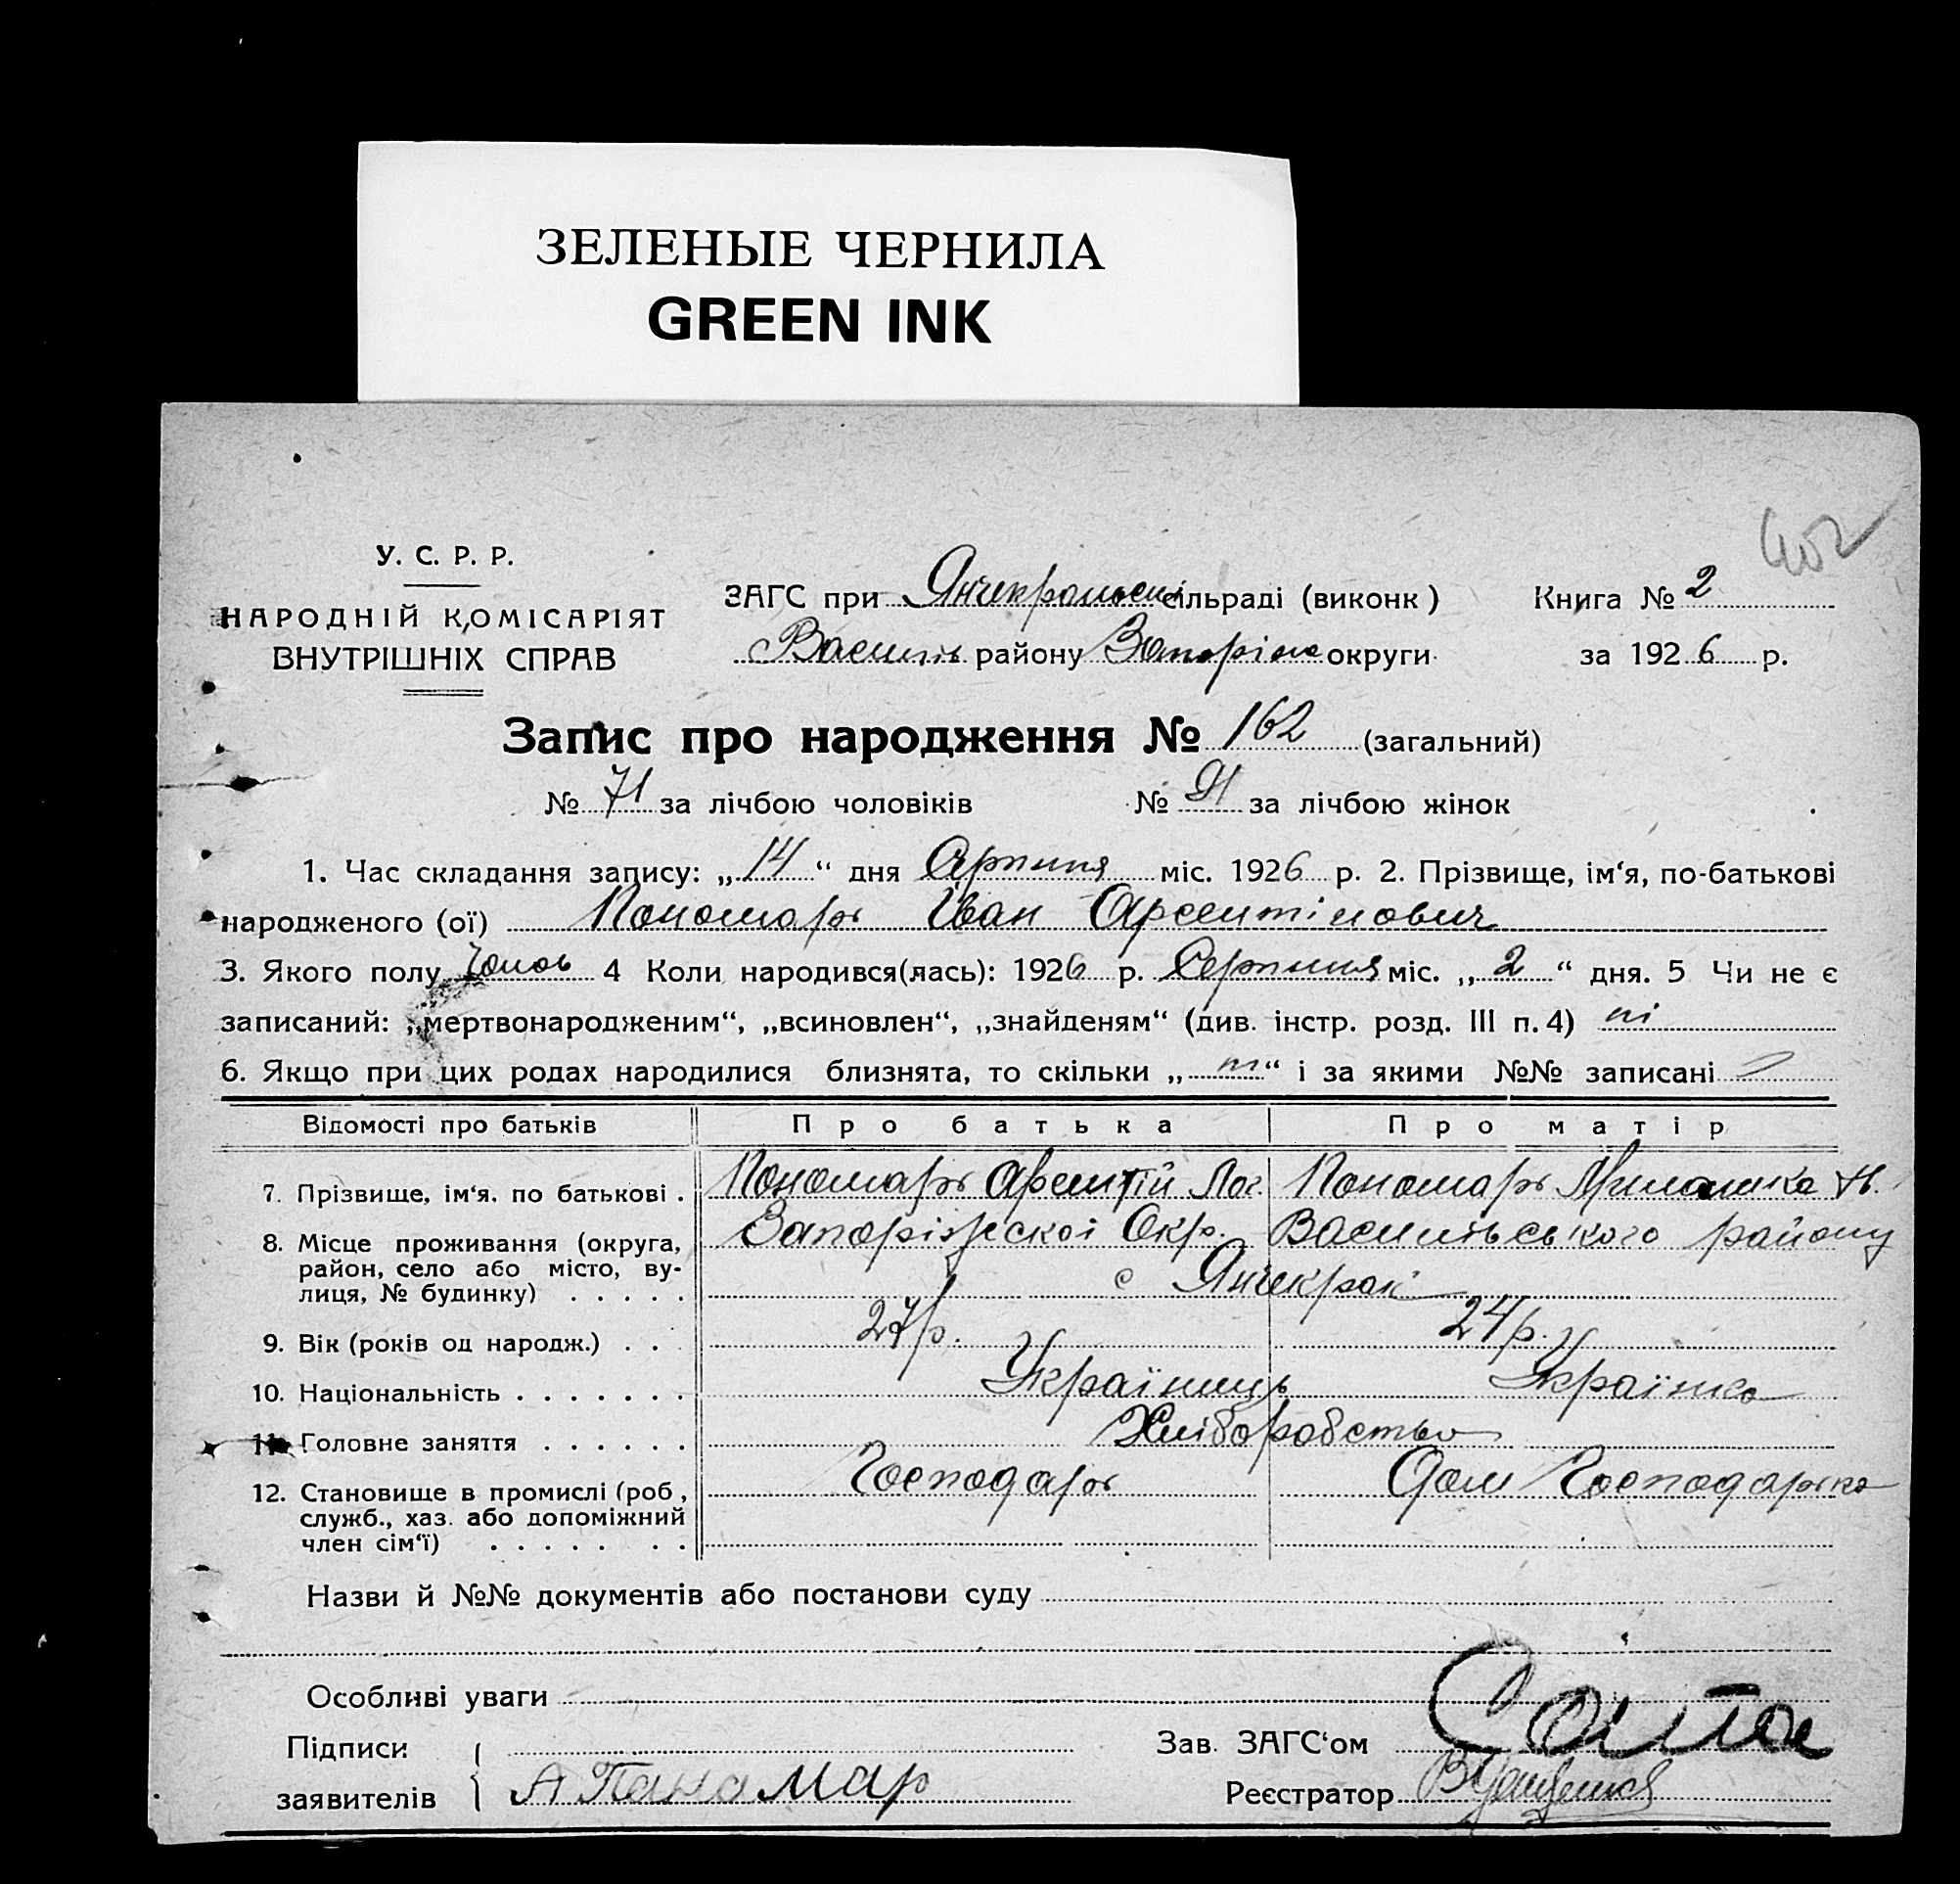 ЗЕЛЕНЫЕ ЧЕРНИЛА
GREEN INK
402
У. С. Р. Р.
НАРОДНІЙ КОМІСАРІЯТ
ВНУТРІШНІХ СПРАВ
ЗАГС при Янчекракські сільраді (виконк)
Василів району Запорізьк округи
Книга № 2
за 1926 р.
Запис про народження № 162 (загальний)
№ 71 за лічбою чоловіків № 91 за лічбою жінок
1. Час складання запису: „14“ дня Серпня міс. 1926 р. 2. Прізвище, ім‘я, по-батькові
народженого (ої) Пономарь Іван Арсентінович
3. Якого полу Чолов 4 Коли народився(лась): 1926 р. Серпния міс. „2“ дня. 5 Чи не є
записаний: „мертвонародженим“, „всиновлен“, „знайденям“ (див. інстр. розд. III п. 4) ні
6. Якщо при цих родах народилися близнята, то скільки „ “ і за якими №№ записані
Відомості про батьків Про батька Про матір
7. Прізвище, ім‘я. по батькові . Пономарь Арсентій Пономарь
8. Місце проживання (округа, Запоріжскої Окр. Василівського району
район, село або місто, ву- с Янчекрак
лиця, № будинку) . . . . .
9. Вік (років од народж.) . . . 27 р. 24 р.
10. Національність . . . . . . . Українець Українка
11. Головне заняття . . . . . . Хліборобство
12. Становище в промислі (роб, Господарь Дом Господарька
служб., хаз. або допоміжний
член сім‘ї) . . . . . . .
Назви й №№ документів або постанови суду
Особливі уваги
Підписи
заявителів А Панамар
Зав. ЗАГС‘ом
Реєстратор